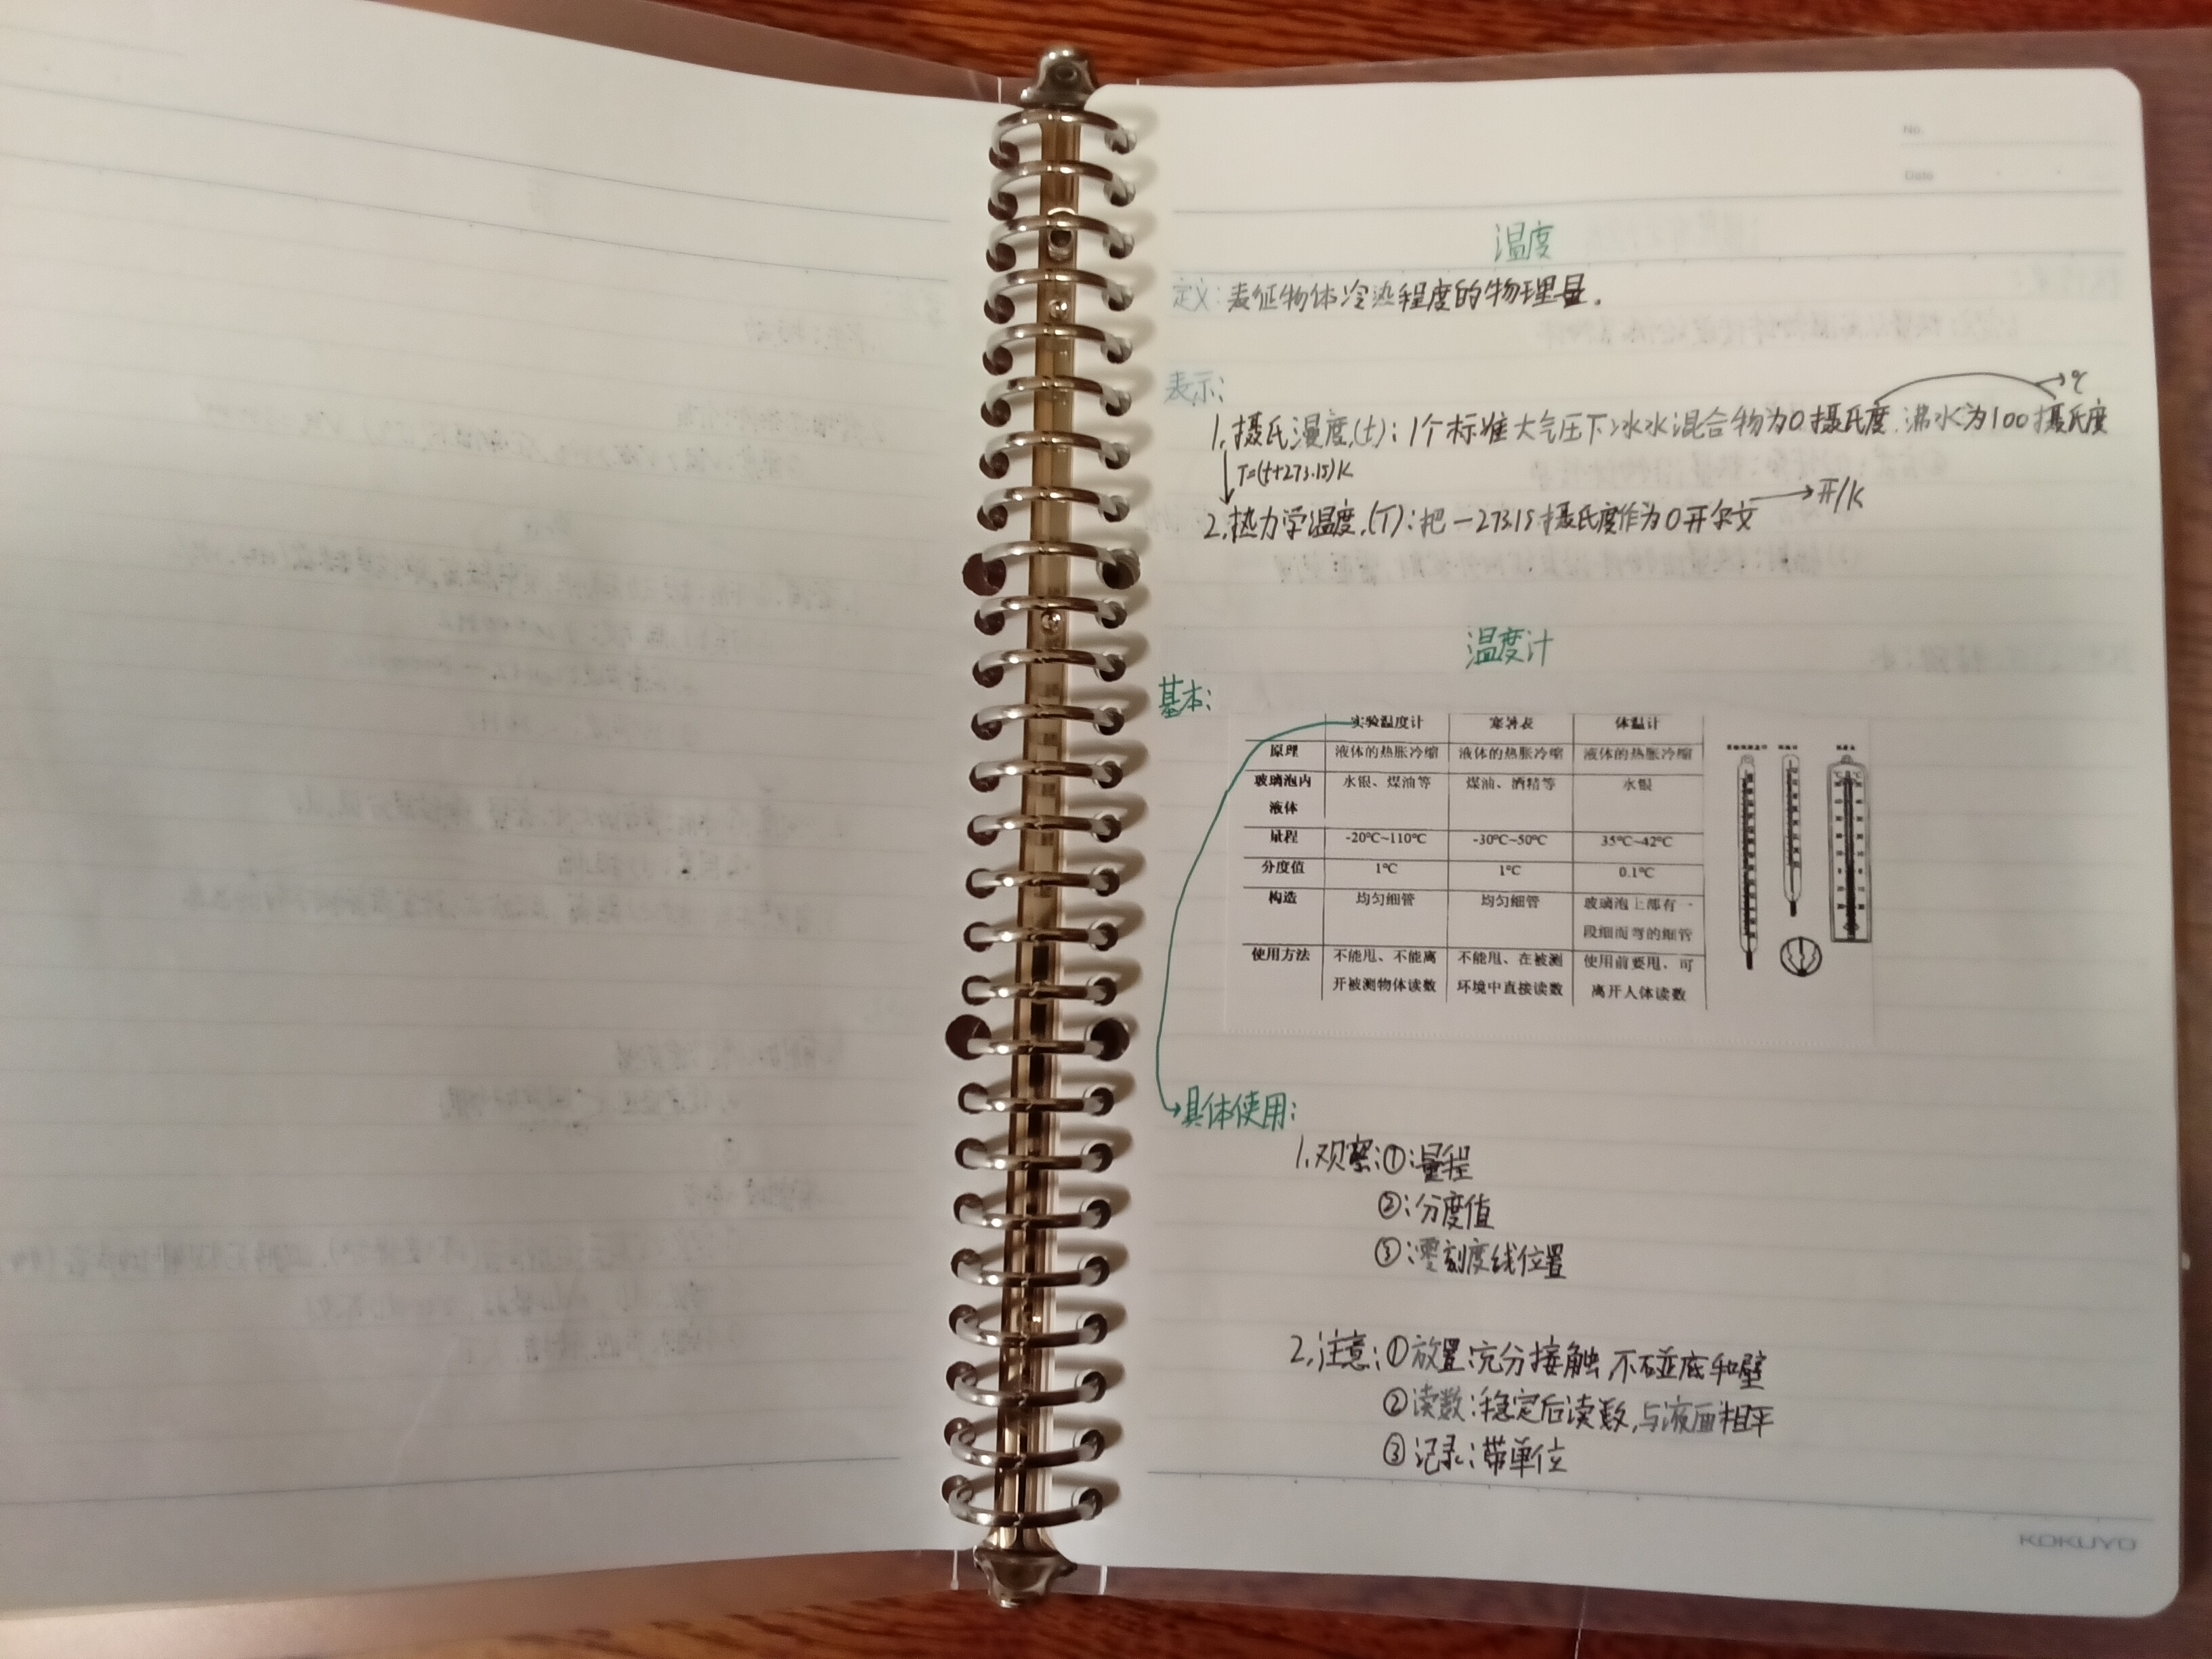 No.
Date
温度
定义：表征物体冷热程度的物理量.
表示：
℃
1.摄氏温度.(t)：1个标准大气压下冰水混合物为0摄氏度.沸水为100摄氏度
T=(t+273.15)K
开/K
2.热力学温度.(T)：把-273.15摄氏度作为0开尔文
温度计
基本：
实验温度计 寒暑表 体温计
原理 液体的热胀冷缩 液体的热胀冷缩 液体的热胀冷缩
玻璃泡内 水银、煤油等 煤油、酒精等 水银
液体
量程 -20℃~110℃ -30℃~50℃ 35℃~42℃
分度值 1℃ 1℃ 0.1℃
构造 均匀细管 均匀细管 玻璃泡上部有一
段细而弯的细管
使用方法 不能甩、不能离 不能甩、在被测 使用前要甩、可
开被测物体读数 环境中直接读数 离开人体读数
具体使用：
1.观察：①量程
②：分度值
③：零刻度线位置
2.注意：①放置：充分接触,不碰底和壁
②读数：稳定后读数,与液面相平
③记录：带单位
KOKUYO